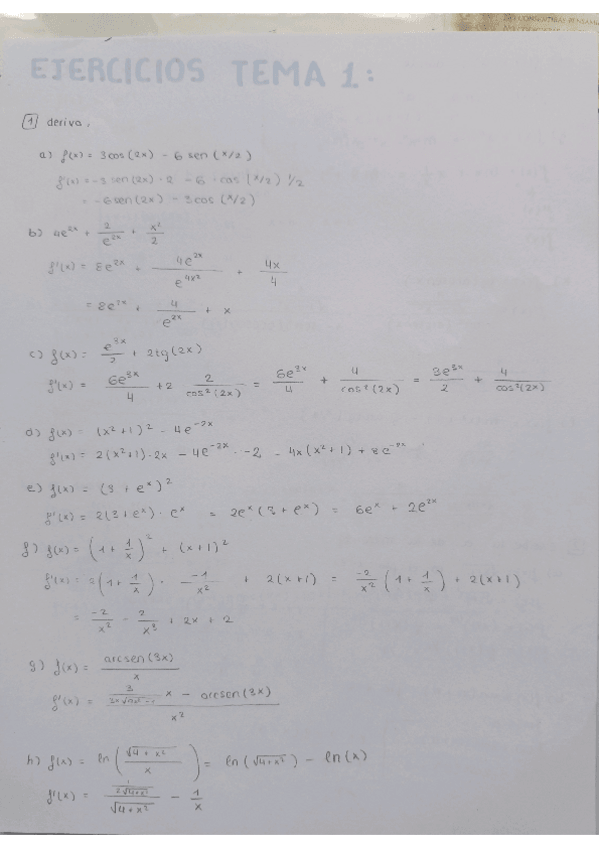 EJERCICIOS TEMA 1:
1 deriva.
a) f(x) = 3cos(2x) - 6 sen (x/2)
f'(x) = -3 sen(2x) · 2 - 6 · cos (x/2) 1/2
= -6sen(2x) - 3cos (x/2)
b) 4e^2x + 2/e^2x + x²/2
f'(x) = 8e^2x + 4e^2x/e^4x² + 4x/4
= 8e^2x + 4/e^2x + x
c) f(x) = e^3x/2 + 2tg(2x)
f'(x) = 6e^3x/4 + 2 2/cos²(2x) = 6e^3x/4 + 4/cos²(2x) = 3e^3x/2 + 4/cos²(2x)
d) f(x) = (x²+1)² - 4e^-2x
f'(x) = 2(x²+1)·2x - 4e^-2x · -2 - 4x(x²+1) + 8e^-2x
e) f(x) = (3 + e^x)²
f'(x) = 2(3+e^x) · e^x = 2e^x (3+e^x) = 6e^x + 2e^2x
f) f(x) = (1 + 1/x)² + (x+1)²
f'(x) = 2(1 + 1/x) · -1/x² + 2(x+1) = -2/x² (1 + 1/x) + 2(x+1)
= -2/x² - 2/x³ + 2x + 2
g) f(x) = arcsen(3x)/x
f'(x) = x - arcsen(3x)/x²
h) f(x) = ln (√4+x²/x) = ln (√4+x²) - ln(x)
f'(x) = 1/2√4+x²/√4+x² - 1/x